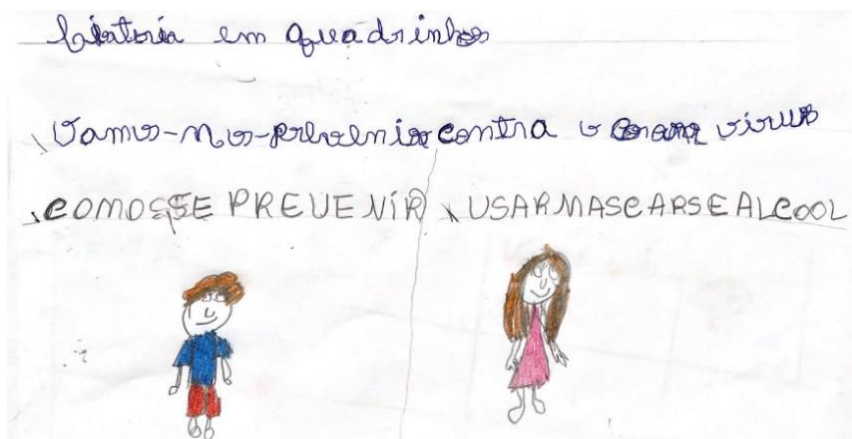 historia em quadrinhos
Vamos-nos-prevenir contra o corona vírus
COMOSSE PREVENIR USARMASCARSEALCOOL